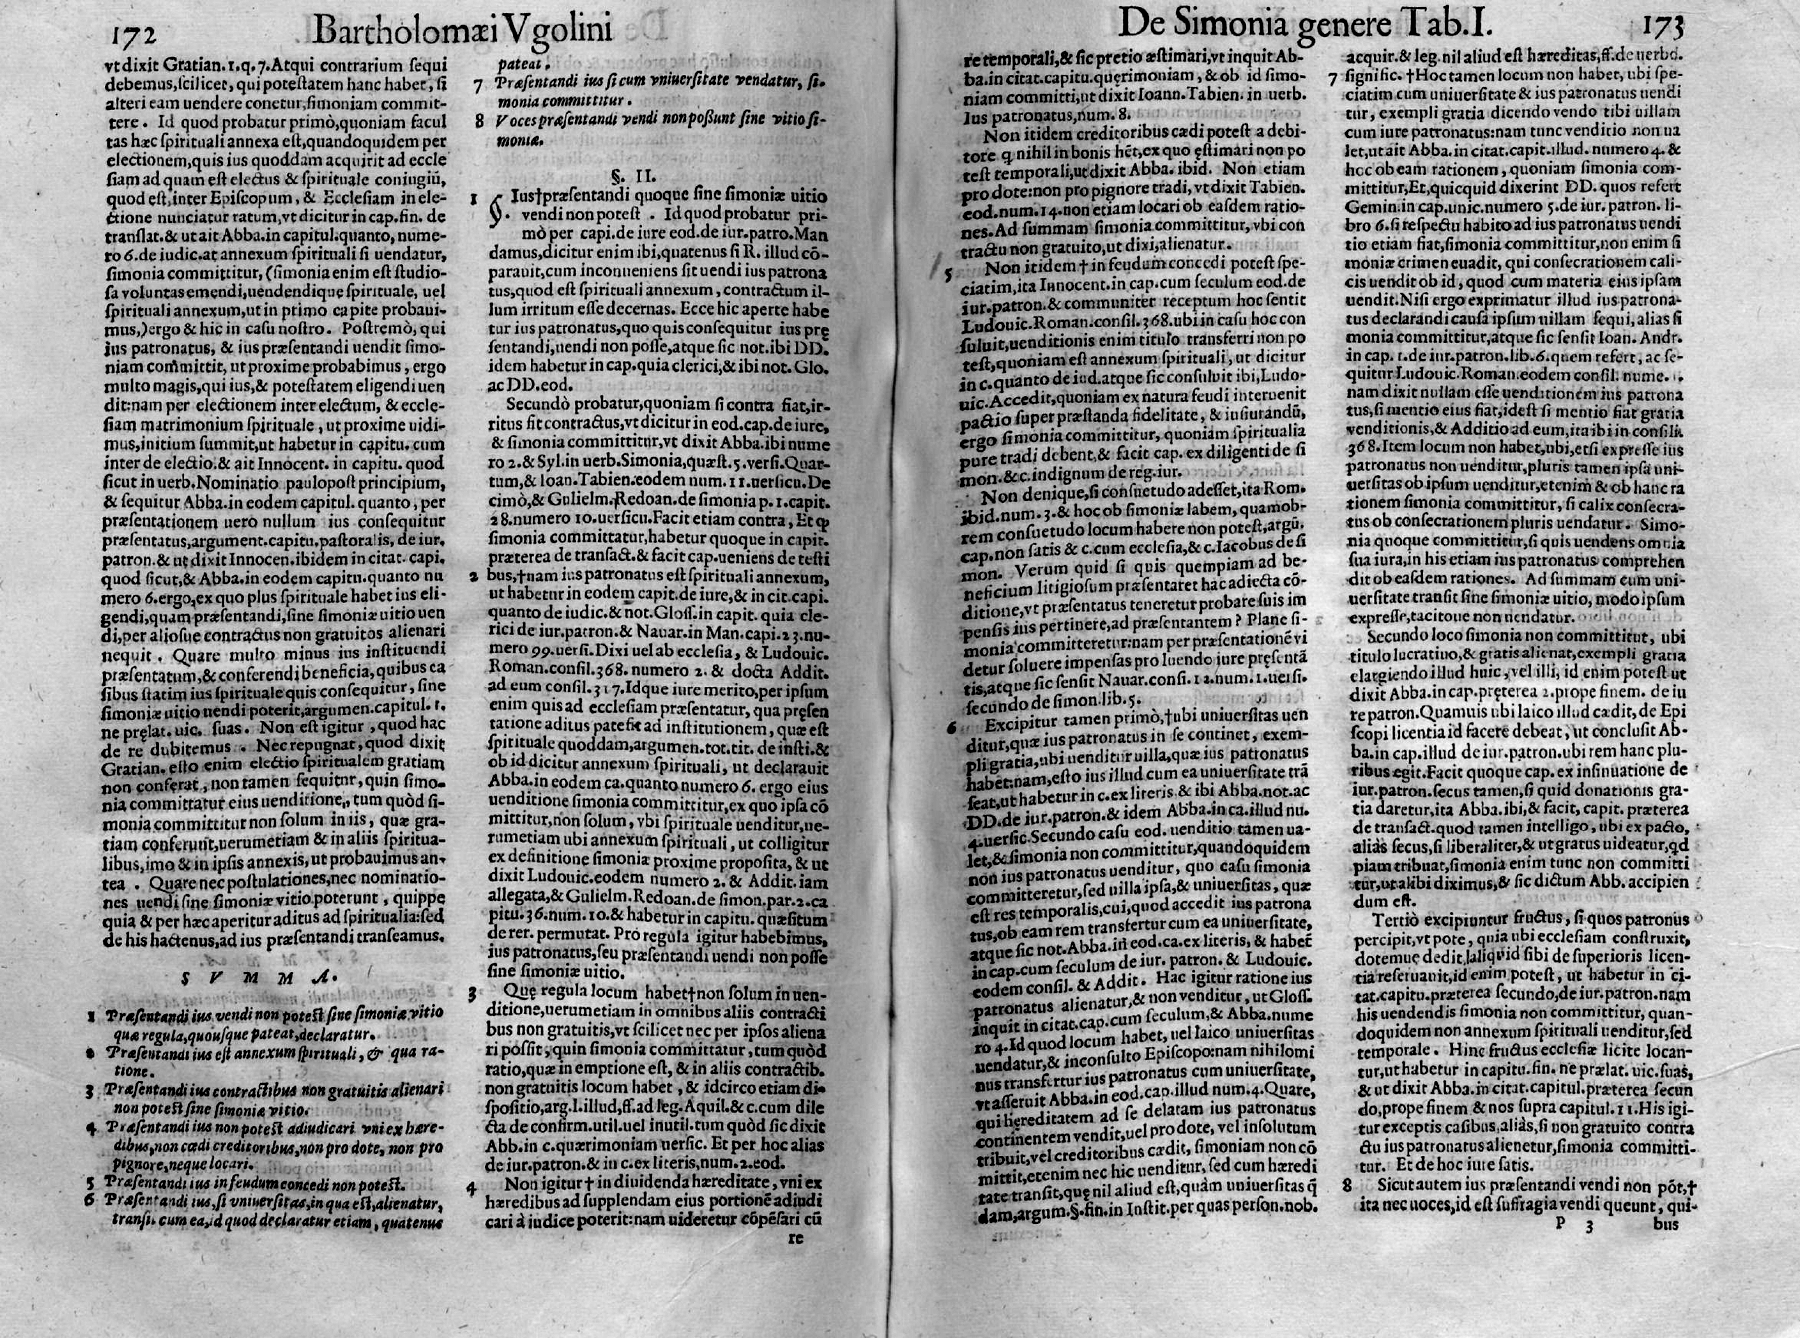 172 Bartholomæi Vgolini
vt dixit Gratian. 1. q. 7. Atqui contrarium sequi
debemus, scilicet, qui potestatem hanc habet, si
alteri eam uendere conetur, simoniam commit-
tere. Id quod probatur primò, quoniam facul
tas hæc spirituali annexa est, quandoquidem per
electionem, quis ius quoddam acquirit ad eccle
siam ad quam est electus & spirituale coniugiū,
quod est, inter Episcopum, & Ecclesiam in ele-
ctione nunciatur ratum, vt dicitur in cap. fin. de
translat. & ut ait Abba. in capitul. quanto, nume-
ro 6. de iudic. at annexum spirituali si uendatur,
simonia committitur, (simonia enim est studio-
sa voluntas emendi, uendendique spirituale, uel
spirituali annexum, ut in primo capite probaui-
mus,) ergo & hic in casu nostro. Postremò, qui
ius patronatus, & ius præsentandi uendit simo-
niam committit, ut proxime probabimus, ergo
multo magis, qui ius, & potestatem eligendi uen
dit: nam per electionem inter electum, & eccle-
siam matrimonium spirituale, ut proxime uidi-
mus, initium summit, ut habetur in capitu. cum
inter de electio. & ait Innocent. in capitu. quod
sicut in uerb. Nominatio paulopost principium,
& sequitur Abba. in eodem capitul. quanto, per
præsentationem uerò nullum ius consequitur
præsentatus, argument. capitu. pastoralis, de iur.
patron. & ut dixit Innocen. ibidem in citat. capi.
quod sicut, & Abba. in eodem capitu. quanto nu
mero 6. ergo, ex quo plus spirituale habet ius eli-
gendi, quam præsentandi, sine simoniæ uitio uen
di, per aliosue contractus non gratuitos alienari
nequit. Quare multo minus ius instituendi
præsentatum, & conferendi beneficia, quibus ea
sibus statim ius spirituale quis consequitur, sine
simoniæ uitio uendi poterit, argumen. capitul. 1.
ne pręlat. uic. suas. Non est igitur, quod hac
de re dubitemus. Nec repugnat, quod dixit
Gratian. esto enim electio spiritualem gratiam
non conferat, non tamen sequitur, quin simo-
nia committatur eius uenditione, tum quòd si-
monia committitur non solum in iis, quæ gra-
tiam conferunt, uerumetiam & in aliis spiritua-
libus, imo & in ipsis annexis, ut probauimus an-
tea. Quare nec postulationes, nec nominatio-
nes uendi sine simoniæ vitio poterunt, quippe
quia & per hæc aperitur aditus ad spiritualia: sed
de his hactenus, ad ius præsentandi transeamus.
S V M M A.
1 Præsentandi ius vendi non potest sine simoniæ vitio
quæ regula, quousque pateat, declaratur.
2 Præsentandi ius est annexum spirituali, & qua ra-
tione.
3 Præsentandi ius contractibus non gratuitis alienari
non potest sine simoniæ vitio.
4 Præsentandi ius non potest adiudicari vni ex hære-
dibus, non cædi creditoribus, non pro dote, non pro
pignore, neque locari.
5 Præsentandi ius in feudum concedi non potest.
6 Præsentandi ius, si vniuersitas, in qua est, alienatur,
transit cum ea, id quod declaratur etiam, quatenus
pateat.
7 Præsentandi ius si cum vniuersitate vendatur, si-
monia committitur.
8 Voces præsentandi vendi non possunt sine vitio si-
moniæ.
§. II.
1 §. Ius†præsentandi quoque sine simoniæ uitio
vendi non potest. Id quod probatur pri-
mò per capi. de iure eod. de iur. patro. Man
damus, dicitur enim ibi, quatenus si R. illud cō-
parauit, cum inconueniens sit uendi ius patrona
tus, quod est spirituali annexum, contractum il-
lum irritum esse decernas. Ecce hic aperte habe
tur ius patronatus, quo quis consequitur ius prę
sentandi, uendi non posse, atque sic not. ibi DD.
idem habetur in cap. quia clerici, & ibi not. Glo.
ac DD. eod.
Secundò probatur, quoniam si contra fiat, ir-
ritus fit contractus, vt dicitur in eod. cap. de iure,
& simonia committitur, vt dixit Abba. ibi nume
ro 2. & Syl. in uerb. Simonia, quæst. 5. versi. Quar-
tum, & Ioan. Tabien. eodem num. 11. uersicu. De
cimò, & Gulielm. Redoan. de simonia p. 1. capit.
28. numero 10. uersicu. Facit etiam contra, Et ꝙ
simonia committatur, habetur quoque in capit.
præterea de transact. & facit cap. ueniens de testi
2 bus, †nam ius patronatus est spirituali annexum,
ut habetur in eodem capit. de iure, & in cit. capi.
quanto de iudic. & not. Gloss. in capit. quia cle-
rici de iur. patron. & Nauar. in Man. capi. 23. nu-
mero 99. uersi. Dixi uel ab ecclesia, & Ludouic.
Roman. consil. 368. numero 2. & docta Addit.
ad eum consil. 317. Idque iure merito, per ipsum
enim quis ad ecclesiam præsentatur, qua pręsen
tatione aditus patefit ad institutionem, quæ est
spirituale quoddam, argumen. tot. tit. de insti. &
ob id dicitur annexum spirituali, ut declarauit
Abba. in eodem ca. quanto numero 6. ergo eius
uenditione simonia committitur, ex quo ipsa cō
mittitur, non solum, vbi spirituale uenditur, ue-
rumetiam ubi annexum spirituali, ut colligitur
ex definitione simoniæ proxime proposita, & ut
dixit Ludouic. eodem numero 2. & Addit. iam
allegata, & Gulielm. Redoan. de simon. par. 2. ca
pitu. 36. num. 10. & habetur in capitu. quæsitum
de rer. permutat. Pro regula igitur habebimus,
ius patronatus, seu præsentandi uendi non posse
sine simoniæ uitio.
3 Quę regula locum habet†non solum in uen-
ditione, uerumetiam in omnibus aliis contracti
bus non gratuitis, vt scilicet nec per ipsos aliena
ri possit, quin simonia committatur, tum quòd
ratio, quæ in emptione est, & in aliis contractib.
non gratuitis locum habet, & idcirco etiam di-
spositio, arg. l. illud, ff. ad leg. Aquil. & c. cum dile
cta de confirm. util. uel inutil. tum quòd sic dixit
Abb. in c. quærimoniam uersic. Et per hoc alias
de iur. patron. & in c. ex literis, num. 2. eod.
4 Non igitur † in diuidenda hæreditate, vni ex
hæredibus ad supplendam eius portionē adiudi
cari à iudice poterit: nam uideretur cōpēsari cū
re
De Simonia genere Tab. I. 173
re temporali, & sic pretio æstimari, vt inquit Ab-
ba. in citat. capitu. quęrimoniam, & ob id simo-
niam committi, ut dixit Ioann. Tabien. in uerb.
Ius patronatus, num. 8.
Non itidem creditoribus cædi potest a debi-
tore q̄ nihil in bonis hēt, ex quo ęstimari non po
test temporali, ut dixit Abba. ibid. Non etiam
pro dote: non pro pignore tradi, vt dixit Tabien.
eod. num. 14. non etiam locari ob easdem ratio-
nes. Ad summam simonia committitur, vbi con
tractu non gratuito, ut dixi, alienatur.
5 Non itidem † in feudum concedi potest spe-
ciatim, ita Innocent. in cap. cum seculum eod. de
iur. patron. & communiter receptum hoc sentit
Ludouic. Roman. consil. 368. ubi in casu hoc con
suluit, uenditionis enim titulo transferri non po
test, quoniam est annexum spirituali, ut dicitur
in c. quanto de iud. atque sic consuluit ibi, Ludo-
uic. Accedit, quoniam ex natura feudi interuenit
pactio super præstanda fidelitate, & iusiurandū,
ergo simonia committitur, quoniam spiritualia
pure tradi debent, & facit cap. ex diligenti de si
mon. & c. indignum de reg. iur.
Non denique, si consuetudo adesset, ita Rom.
ibid. num. 3. & hoc ob simoniæ labem, quamob-
rem consuetudo locum habere non potest, argū.
cap. non satis & c. cum ecclesia, & c. Iacobus de si
mon. Verum quid si quis quempiam ad be-
neficium litigiosum præsentaret hac adiecta cō-
ditione, vt præsentatus teneretur probare suis im
pensis ius pertinere, ad præsentantem? Plane si-
monia committeretur: nam per præsentationē vi
detur soluere impensas pro luendo iure pręsentā
tis, atque sic sensit Nauar. consi. 12. num. 1. uersi.
secundo de simon. lib. 5.
6 Excipitur tamen primò, †ubi uniuersitas uen
ditur, quæ ius patronatus in se continet, exem-
pli gratia, ubi uenditur uilla, quæ ius patronatus
habet: nam, esto ius illud cum ea uniuersitate trā
seat, ut habetur in c. ex literis & ibi Abba. not. ac
DD. de iur. patron. & idem Abba. in ca. illud nu.
4. uersic. Secundo casu eod. uenditio tamen ua-
let, & simonia non committitur, quandoquidem
non ius patronatus uenditur, quo casu simonia
committeretur, sed uilla ipsa, & uniuersitas, quæ
est res temporalis, cui, quod accedit ius patrona
tus, ob eam rem transfertur cum ea uniuersitate,
atque sic not. Abba. in eod. ca. ex literis, & habeť
in cap. cum seculum de iur. patron. & Ludouic.
eodem consil. & Addit. Hac igitur ratione ius
patronatus alienatur, & non venditur, ut Gloss.
inquit in citat. cap. cum seculum, & Abba. nume
ro 4. Id quod locum habet, uel laico uniuersitas
uendatur, & inconsulto Episcopo: nam nihilomi
nus transfertur ius patronatus cum uniuersitate,
vt asseruit Abba. in eod. cap. illud num. 4. Quare,
qui hęreditatem ad se delatam ius patronatus
continentem vendit, uel pro dote, vel insolutum
tribuit, vel creditoribus cædit, simoniam non cō
mittit, etenim nec hic uenditur, sed cum hæredi
tate transit, quę nil aliud est, quàm uniuersitas q̄
dam, argum. §. fin. in Instit. per quas person. nob.
acquir. & leg. nil aliud est hæreditas, ff. de uerbo.
7 signific. †Hoc tamen locum non habet, ubi spe-
ciatim cum uniuersitate & ius patronatus uendi
tur, exempli gratia dicendo vendo tibi uillam
cum iure patronatus: nam tunc venditio non ua
let, ut ait Abba. in citat. capit. illud. numero 4. &
hoc ob eam rationem, quoniam simonia com-
mittitur, Et, quicquid dixerint DD. quos refert
Gemin. in cap. unic. numero 5. de iur. patron. li-
bro 6. si respectu habito ad ius patronatus uendi
tio etiam fiat, simonia committitur, non enim si
moniæ crimen euadit, qui consecrationem cali-
cis uendit ob id, quod cum materia eius ipsam
uendit. Nisi ergo exprimatur illud ius patrona-
tus declarandi causa ipsum uillam sequi, alias si
monia committitur, atque sic sensit Ioan. Andr.
in cap. 1. de iur. patron. lib. 6. quem refert, ac se-
quitur Ludouic. Roman. eodem consil. nume.
nam dixit nullam esse uenditionem ius patrona
tus, si mentio eius fiat, idest si mentio fiat gratia
venditionis, & Additio ad eum, ita ibi in consilii
368. Item locum non habet, ubi, etsi expresse ius
patronatus non uenditur, pluris tamen ipsa uni-
uersitas ob ipsum uenditur, etenim & ob hanc ra
tionem simonia committitur, si calix consecra-
tus ob consecrationem pluris uendatur. Simo-
nia quoque committitur, si quis uendens omnia
sua iura, in his etiam ius patronatus comprehen
dit ob easdem rationes. Ad summam cum uni-
uersitate transit sine simoniæ uitio, modo ipsum
expresse, taciteue non uendatur.
Secundo loco simonia non committitur, ubi
titulo lucratiuo, & gratis alienat, exempli gratia
elargiendo illud huic, vel illi, id enim potest ut
dixit Abba. in cap. pręterea 2. prope finem. de iu
re patron. Quamuis ubi laico illud cædit, de Epi
scopi licentia id facere debeat, ut conclusit Ab-
ba. in cap. illud de iur. patron. ubi rem hanc plu-
ribus egit. Facit quoque cap. ex insinuatione de
iur. patron. secus tamen, si quid donationis gra-
tia daretur, ita Abba. ibi, & facit, capit. præterea
de transact. quod tamen intelligo, ubi ex pacto,
aliàs secus, si liberaliter, & ut gratus uideatur, qd
piam tribuat, simonia enim tunc non committi
tur, ut alibi diximus, & sic dictum Abb. accipien
dum est.
Tertiò excipiuntur fructus, si quos patronus
percipit, vt pote, quia ubi ecclesiam construxit,
dotemue dedit, aliquid sibi de superioris licen-
tia reseruauit, id enim potest, ut habetur in ci-
tat. capitu. præterea secundo, de iur. patron. nam
his uendendis simonia non committitur, quan-
doquidem non annexum spirituali uenditur, sed
temporale. Hinc fructus ecclesiæ licite locan-
tur, ut habetur in capitu. fin. ne prælat. uic. suas,
& ut dixit Abba. in citat. capitul. præterea secun
do, prope finem & nos supra capitul. 11. His igi-
tur exceptis casibus, aliàs, si non gratuito contra
ctu ius patronatus alienetur, simonia committi-
tur. Et de hoc iure satis.
8 Sicut autem ius præsentandi vendi non pōt, †
ita nec uoces, id est suffragia vendi queunt, qui-
P 3 bus